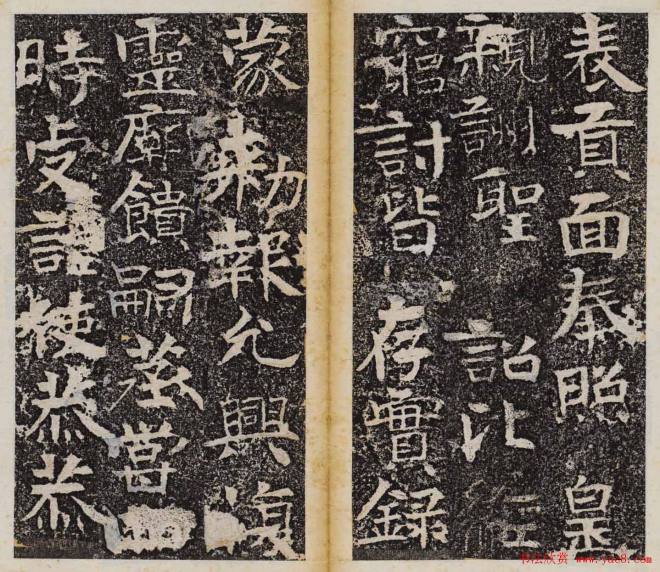 表貢面奉照 皇
親詶聖 詔比經
窮討皆 存實録
蒙 勑報允興復
靈廟饋嗣蒸嘗
時受使恭恭
书法欣赏 www.yac8.com